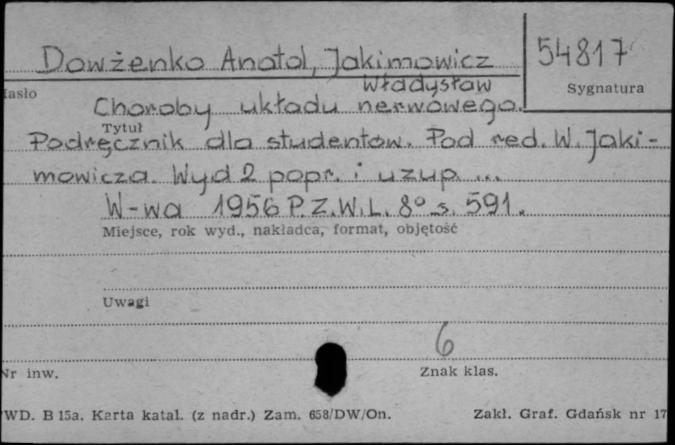 Dowżenko Anatol, Jakimowicz
Władysław
54817
Sygnatura
Hasło
Choroby układu nerwowego.
Tytuł
Podręcznik dla studentów. Pod red. W. Jaki-
mowicza. Wyd 2 popr. i uzup. ...
W-wa 1956 P.Z.W.L. 8° s. 591.
Miejsce, rok wyd., nakładca, format, objętość
Uwagi
6
Nr inw.
Znak klas.
WD. B 15a. Karta katal. (z nadr.) Zam. 658/DW/On.
Zakł. Graf. Gdańsk nr 17